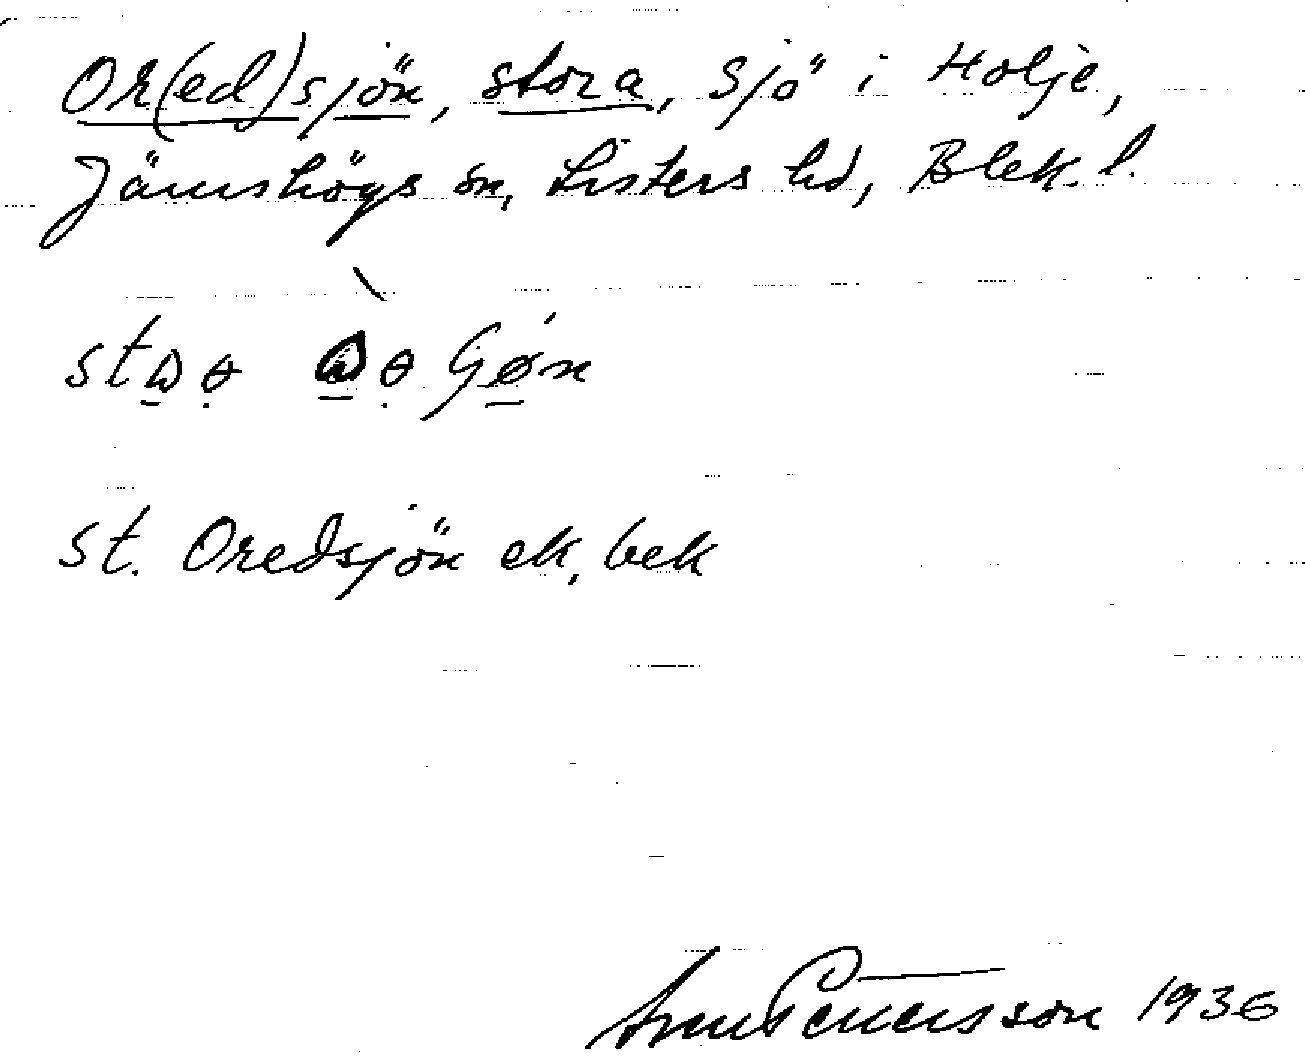 Or(ed)sjön, stora, sjö i Holje,
Jämshögs sn, Listers hd, Blek. l.
st. Oredsjön ek, bek
1936